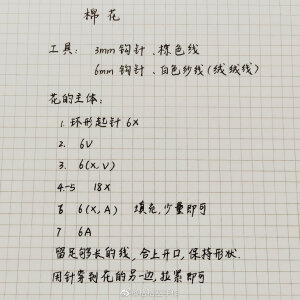 棉花
工具： 3mm 钩针、棕色线
6mm 钩针、白色纱线(绒绒线)
花的主体：
1. 环形起针 6X
2. 6V
3. 6(X,V)
4.-5 18X
6 6(X,A) 填充,少量即可
7 6A
留足够长的线,合上开口,保持形状.
用针穿到花的另一边,拉紧即可